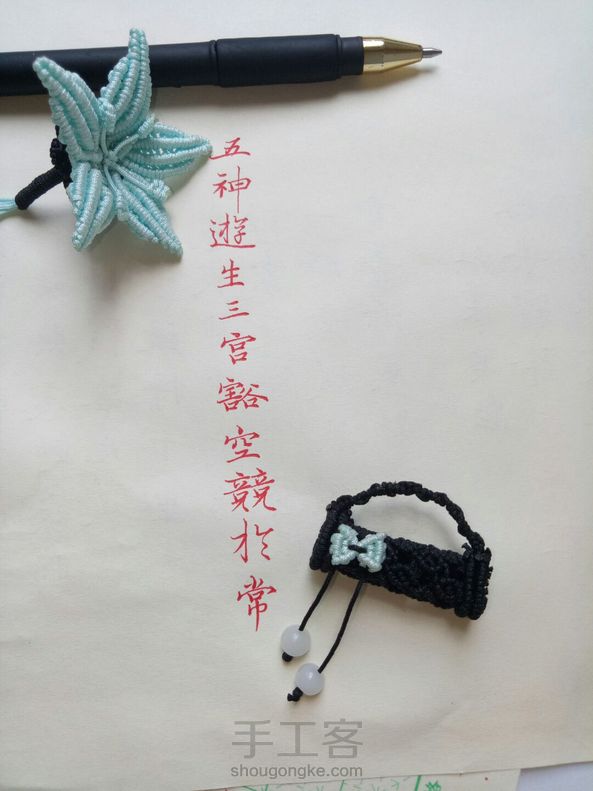 五神遊生三宫豁空競於常
手工客
shougongke.com